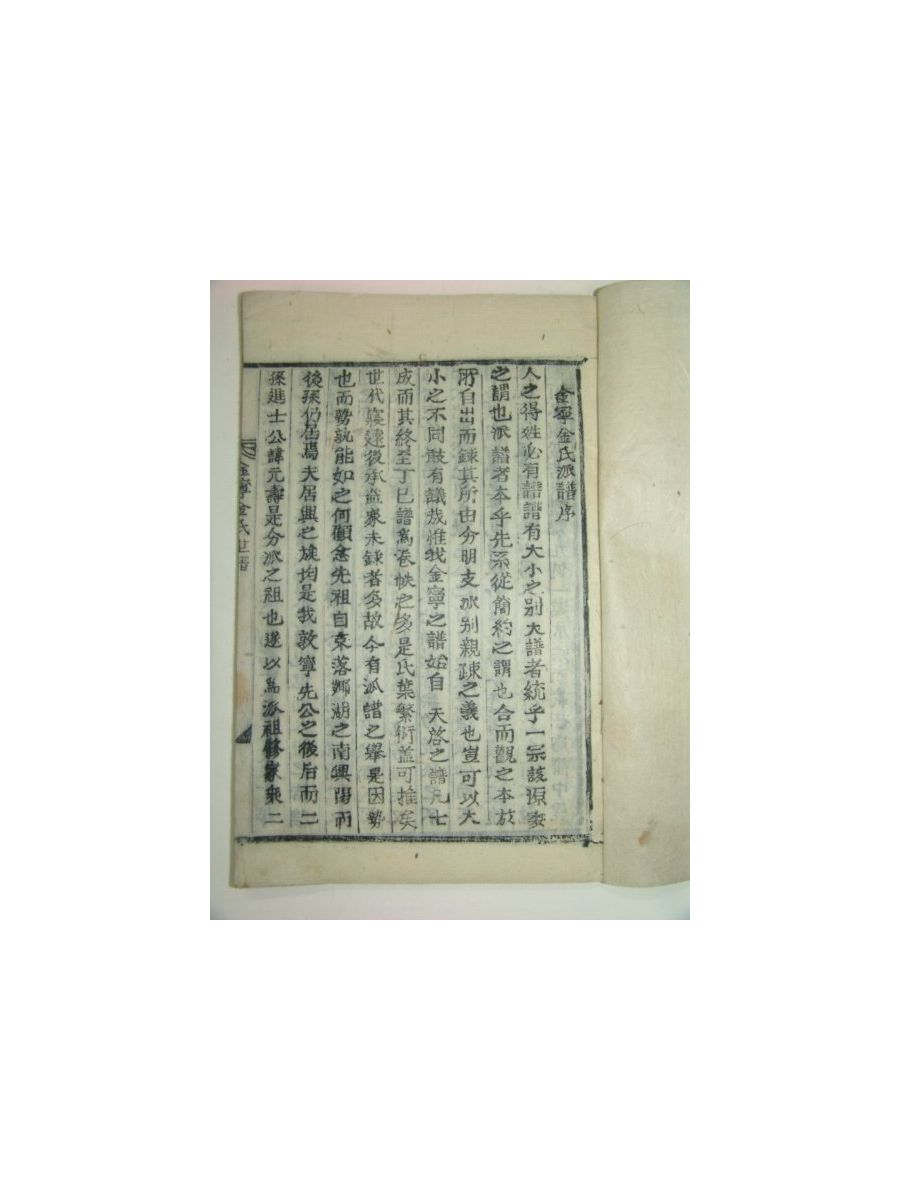 金寧金氏派譜序
人之得姓必有譜譜有大小之別大譜者統乎一宗該源委
之謂也派譜者本乎先系從簡約之謂也合而觀之本於
所自出而錄其所由分明支派別親疎之義也豈可以大
小之不同敢有議哉惟我金寧之譜始自 天啓之譜凡七
成而其終至丁巳譜爲卷帙之多是氏葉繁衍盖可推矣
世代寢遠後承益衆未錄者多故今有派譜之舉是因勢
也而勢孰能如之何顧念先祖自來落鄕湖之南興陽而
後孫仍居焉夫居興之族均是我敦寧先公之後后而二
孫進士公諱元壽是分派之祖也遂以爲派祖修家乘二
金寧金氏世譜